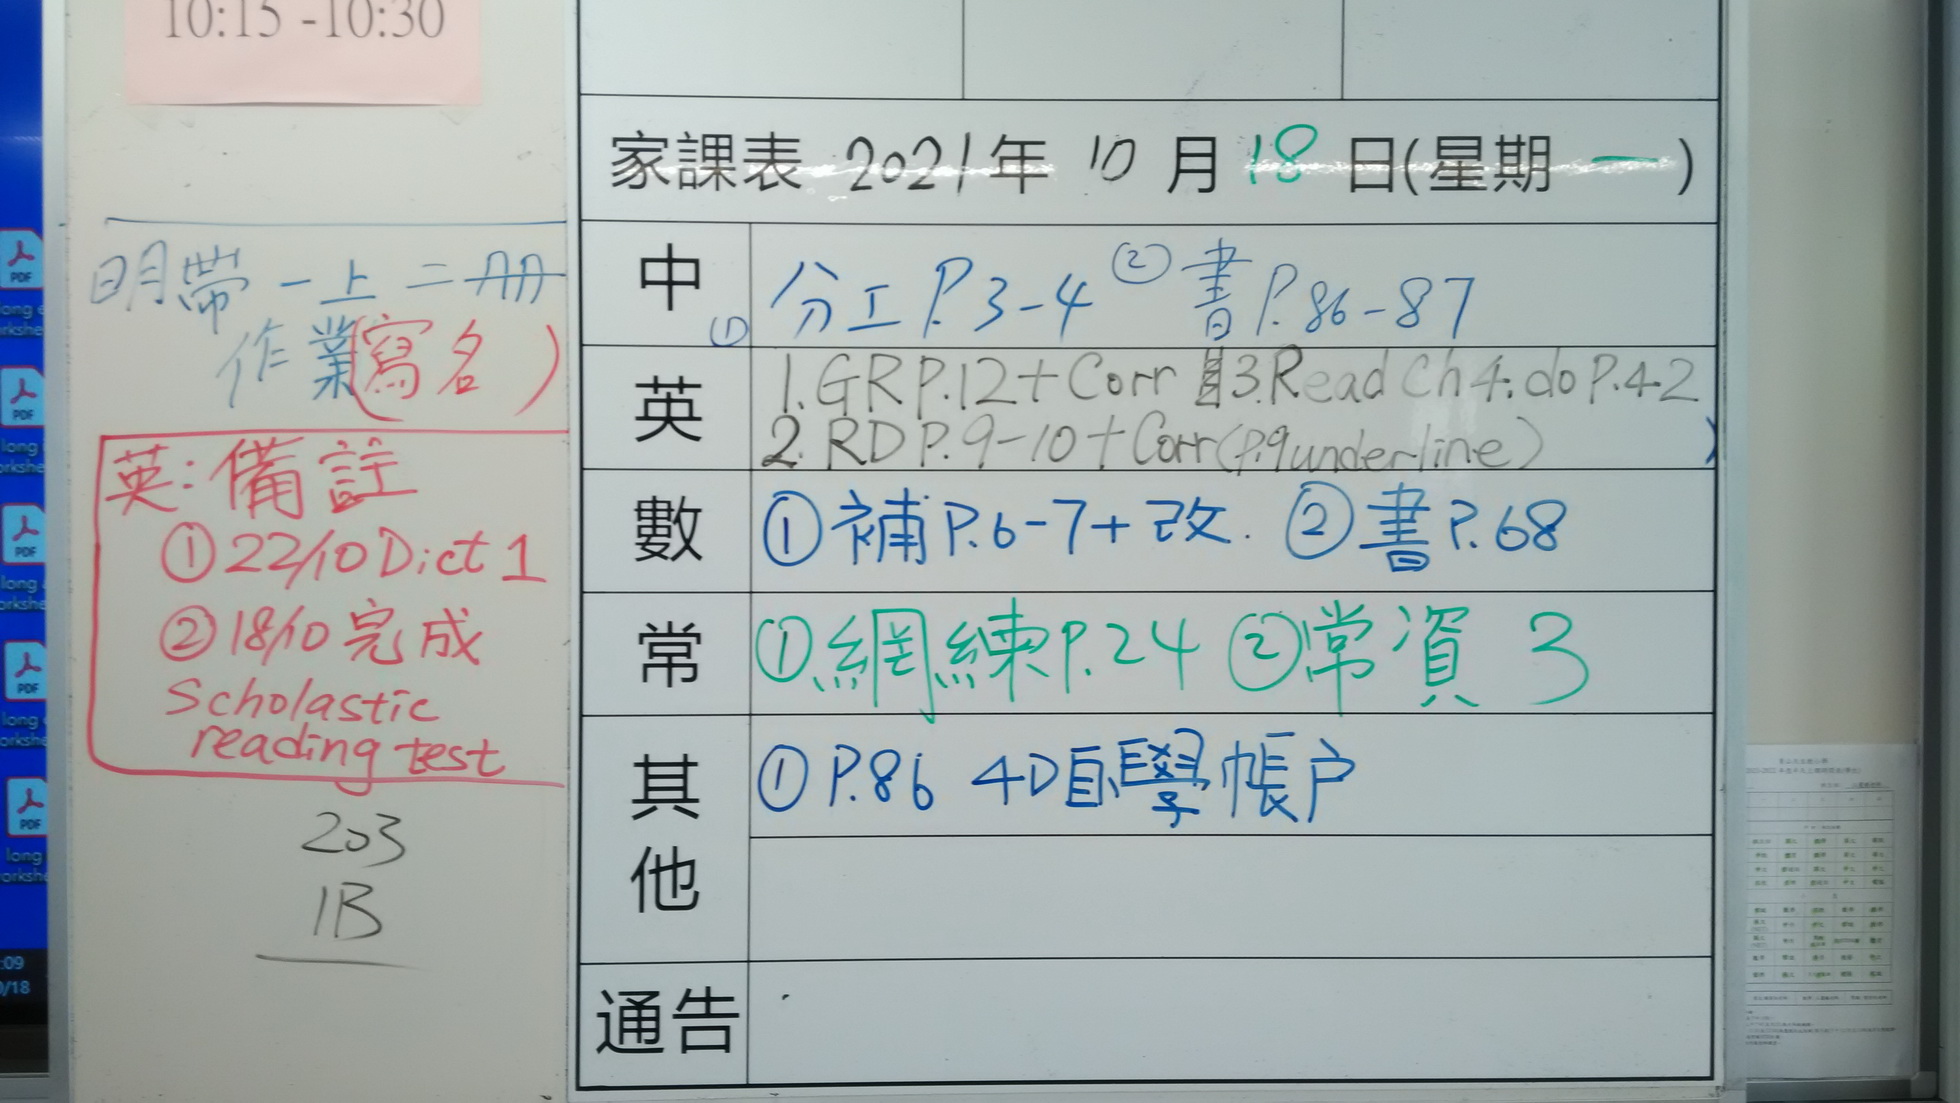 10:15 - 10:30
家課表 2021年 10 月 18 日(星期 一 )
中 ① 分工 P.3-4 ② 書 P.86-87
英 1. GR P.12 + Corr 3. Read Ch 4. do P.42
2. RD P.9-10 + Corr (p.9 underline)
數 ① 補 P.6-7 + 改. ② 書 P.68
常 ① 網練 P.24 ② 常資 3
其他 ① P.86 4D自學帳户
通告
明帶一上二冊
作業(寫名)
英:備註
① 22/10 Dict 1
② 18/10 完成
Scholastic
reading test
203
1B
PDF
long
PDF
long
PDF
long
PDF
long
PDF
long
:09
/18